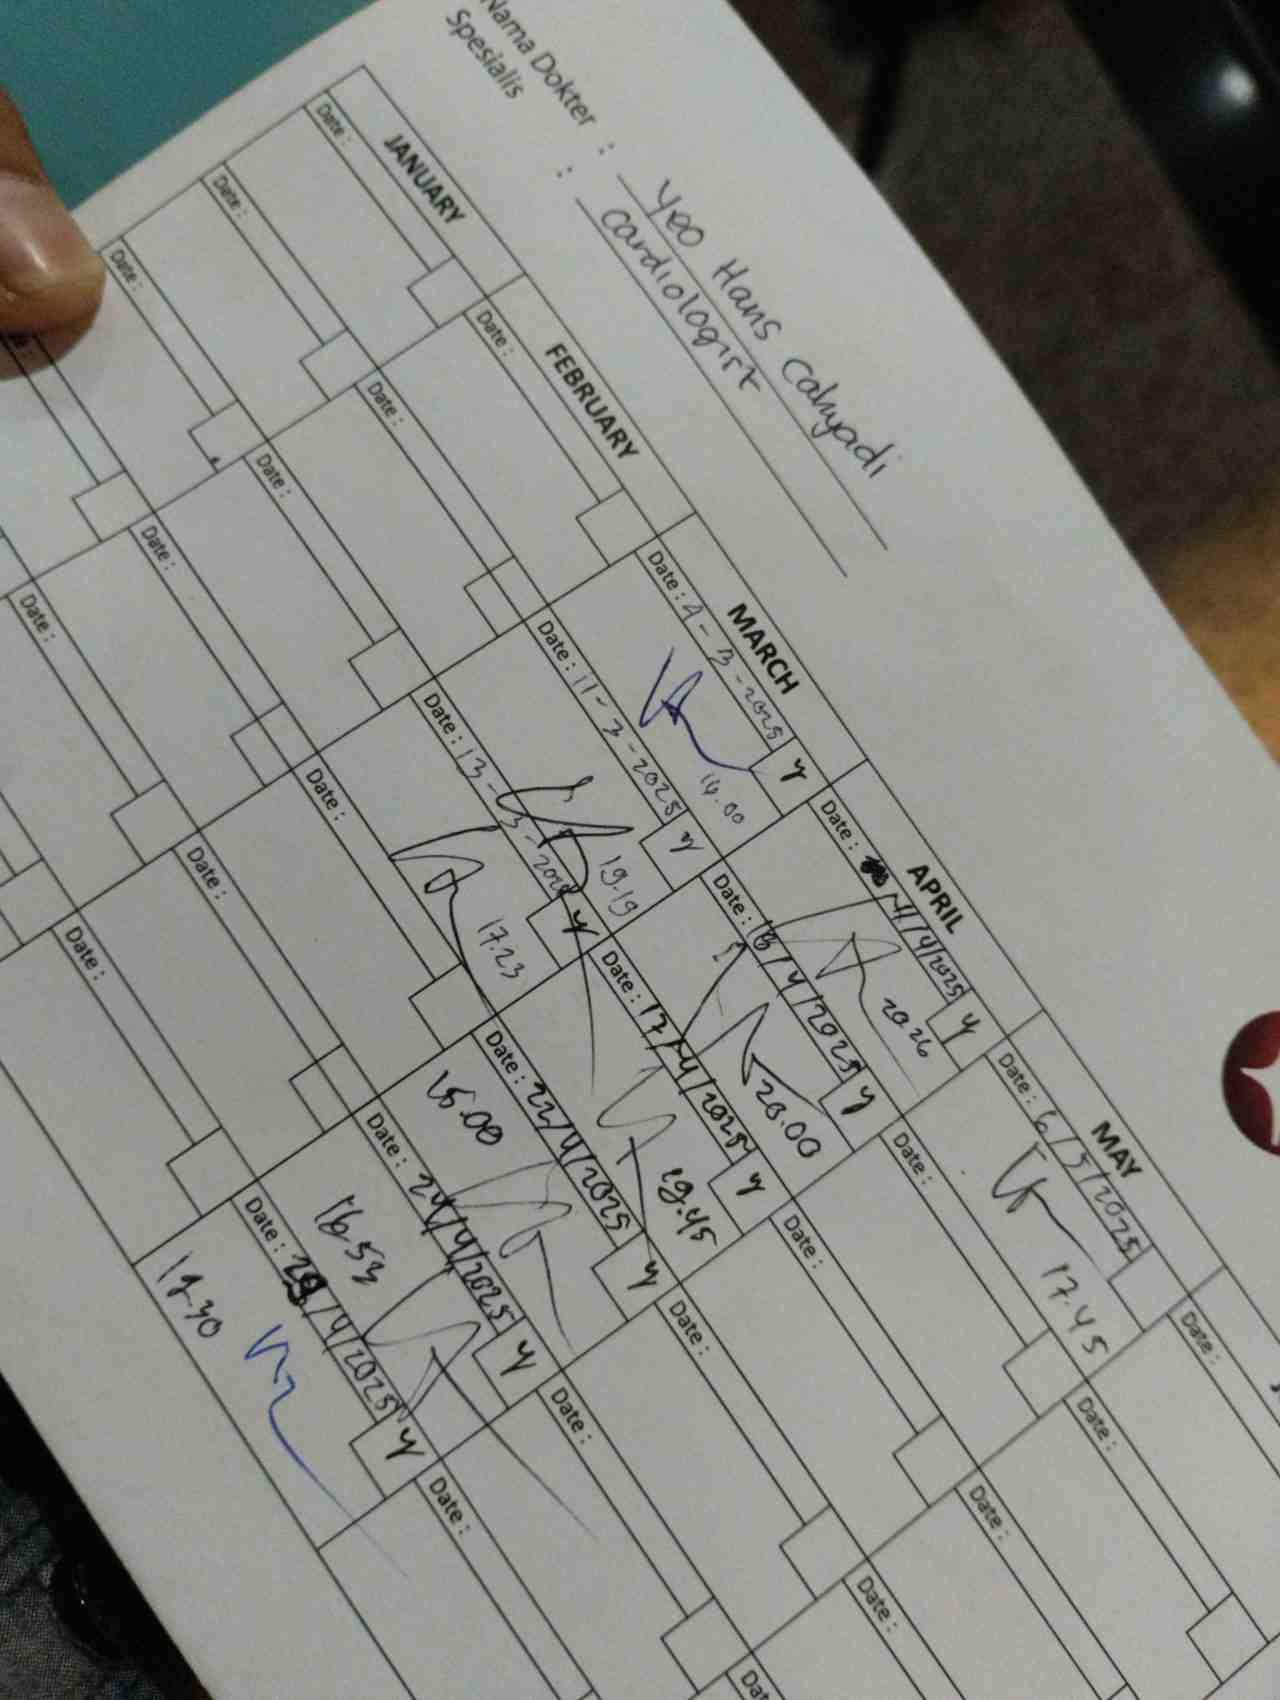 Nama Dokter : Yeo Hans Cahyadi
Spesialis : Cardiologist
JANUARY
FEBRUARY
MARCH
APRIL
MAY
Date :
Date :
Date : 4-3-2025 y
14.00
Date : 14/4/2025 y
20.26
Date : 6/5/2025
17.45
Date :
Date :
Date :
Date : 11-3-2025 y
19.19
Date : 18/4/2025 y
20.00
Date :
Date :
Date :
Date :
Date : 13-3-2025 y
17.23
Date : 17/4/2025 y
19.45
Date :
Date :
Date :
Date :
Date : 22/4/2025 y
15.00
Date :
Date :
Date :
Date :
Date : 24/4/2025 y
16.53
Date :
Date :
Date :
Date : /4/2025 y
Date :
Date :